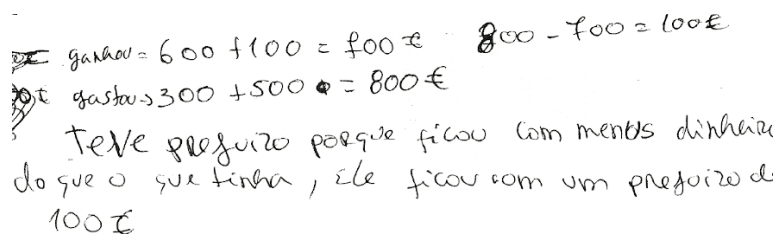 ganhou = 600 + 100 = 700 € 800 - 700 = 100€
gastou → 300 + 500 = 800 €
Teve prejuizo porque ficou com menos dinheiro
do que o que tinha, Ele ficou com um prejuizo de
100 €